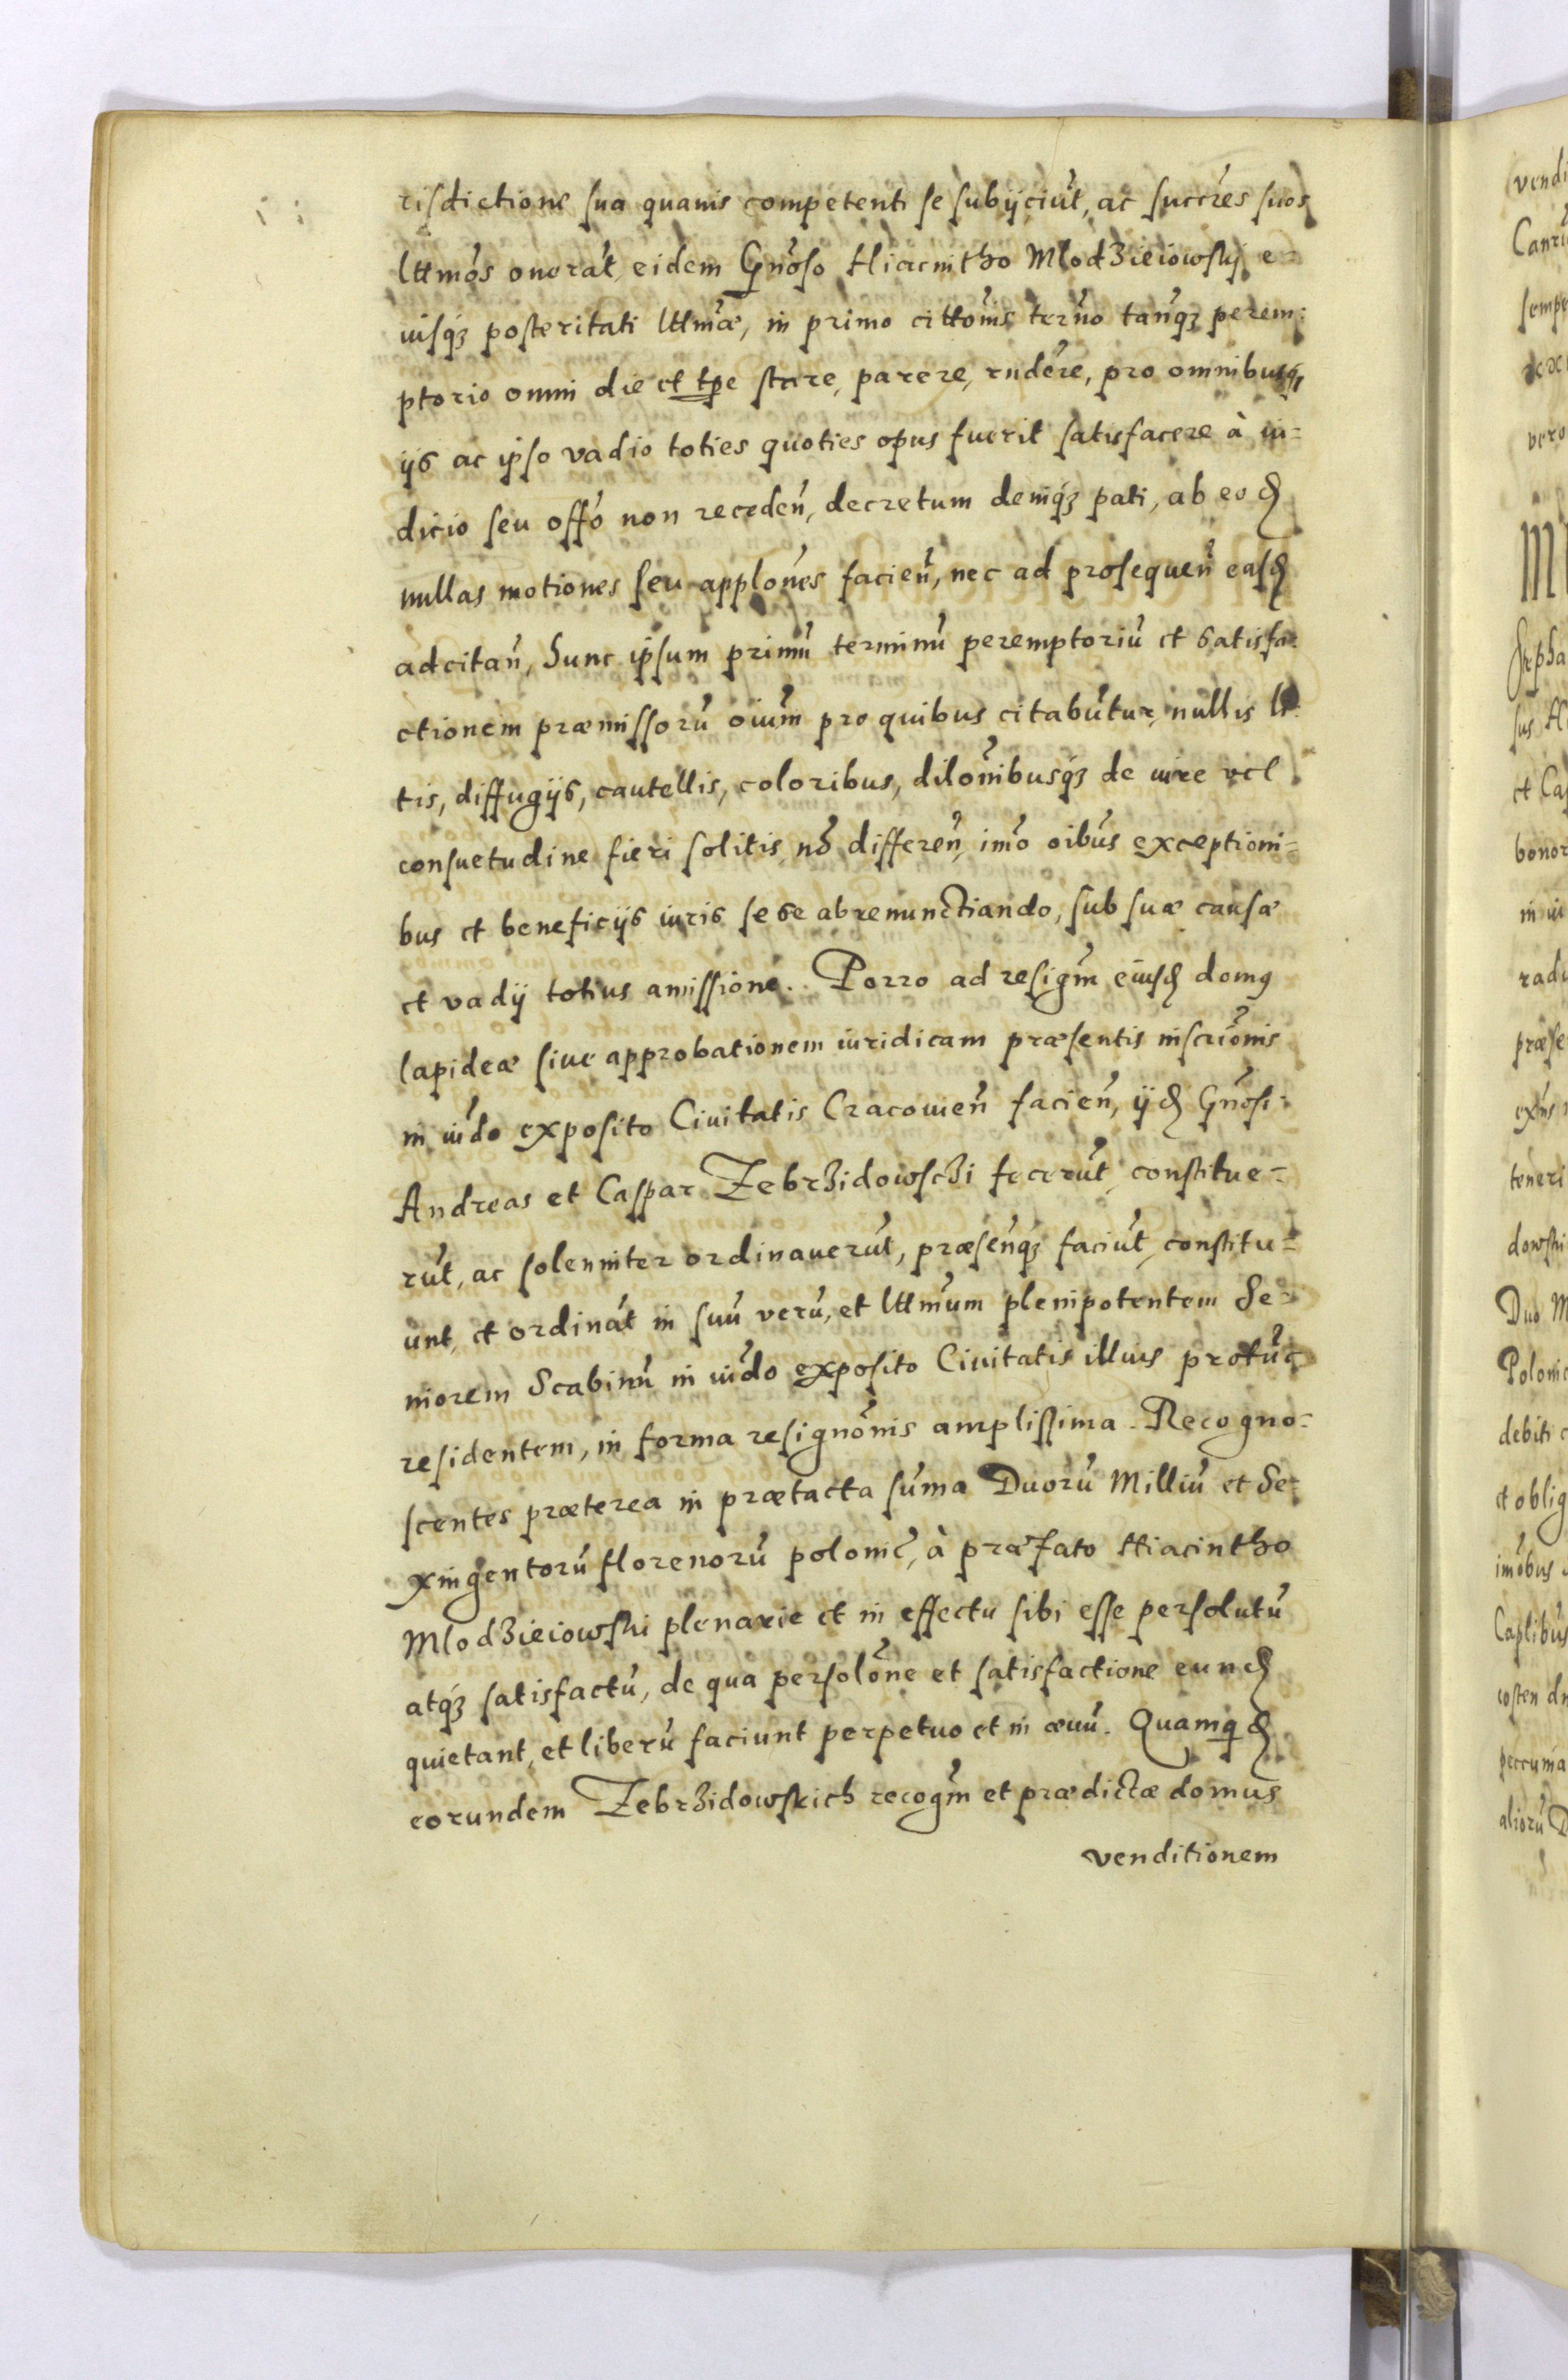 risdictione sua quavis competenti se subÿciūt, ac succr̃es suos
lttmõs onerāt, eidem Gñoso Hiacintho Mlodzieiowskj e-
iusq́ȝ posteritati lttmæ̃, in primo cittõnis terño tanq̃ȝ perem:
ptorio omni die et tp̃e stare, parere, rñdere, pro omnibusq́ȝ
ÿs ac ipso vadio toties quoties opus fuerit satisfacere à iu=
dicio seu offõ non receden̄, decretum deniq́ȝ pati, ab eod
nullas motiones seu applõnes facien̄, nec ad prosequen̄ easd
adcitan̄, hunc ipsum primū terminū peremptoriū et satisfa-
ctionem præmissorū oiūm pro quibus citabūtur, nullis li-
tis, diffugÿs, cautellis, coloribus, dilõnibusq́ȝ de iure vel
consuetudine fieri solitis, nõ differen̄, imo oibūs exceptioni=
bus et beneficÿs iuris sese abrenunctiando, sub suæ causæ
et vadÿ totius amissione. Porro ad resigm̃ eiusd domus
lapideæ sive approbationem iuridicam præsentis inscriõnis
in iūdo exposito Civitatis Cracovien̄ facien̄, ÿd Gñosi:
Andreas et Caspar Zebrzidowschi fecerūt, constitue=
rūt, ac solenniter ordinaverūt, præsenq̃ȝ faciūt, constitu=
unt, et ordināt in suū verū, et lttmũm plenipotentem Se=
niorem Scabinū in iūdo exposito Civitatis illius protūc
residentem, in forma resignõnis amplissima. Recogno=
scentes præterea in prætacta sum̄a Duorū Milliū et Se-
xingentorū florenorū polonic̄, à præfato Hiacintho
Mlodzieiowski plenarie et in effectu sibi esse persolutū
atq́ȝ satisfactū, de qua persolõne et satisfactione eund
quietant, et liberū faciunt perpetuo et in ævū. Quamq̨d
eorundem Zebrzidowskich recogm̃ et prædictæ domus
venditionem